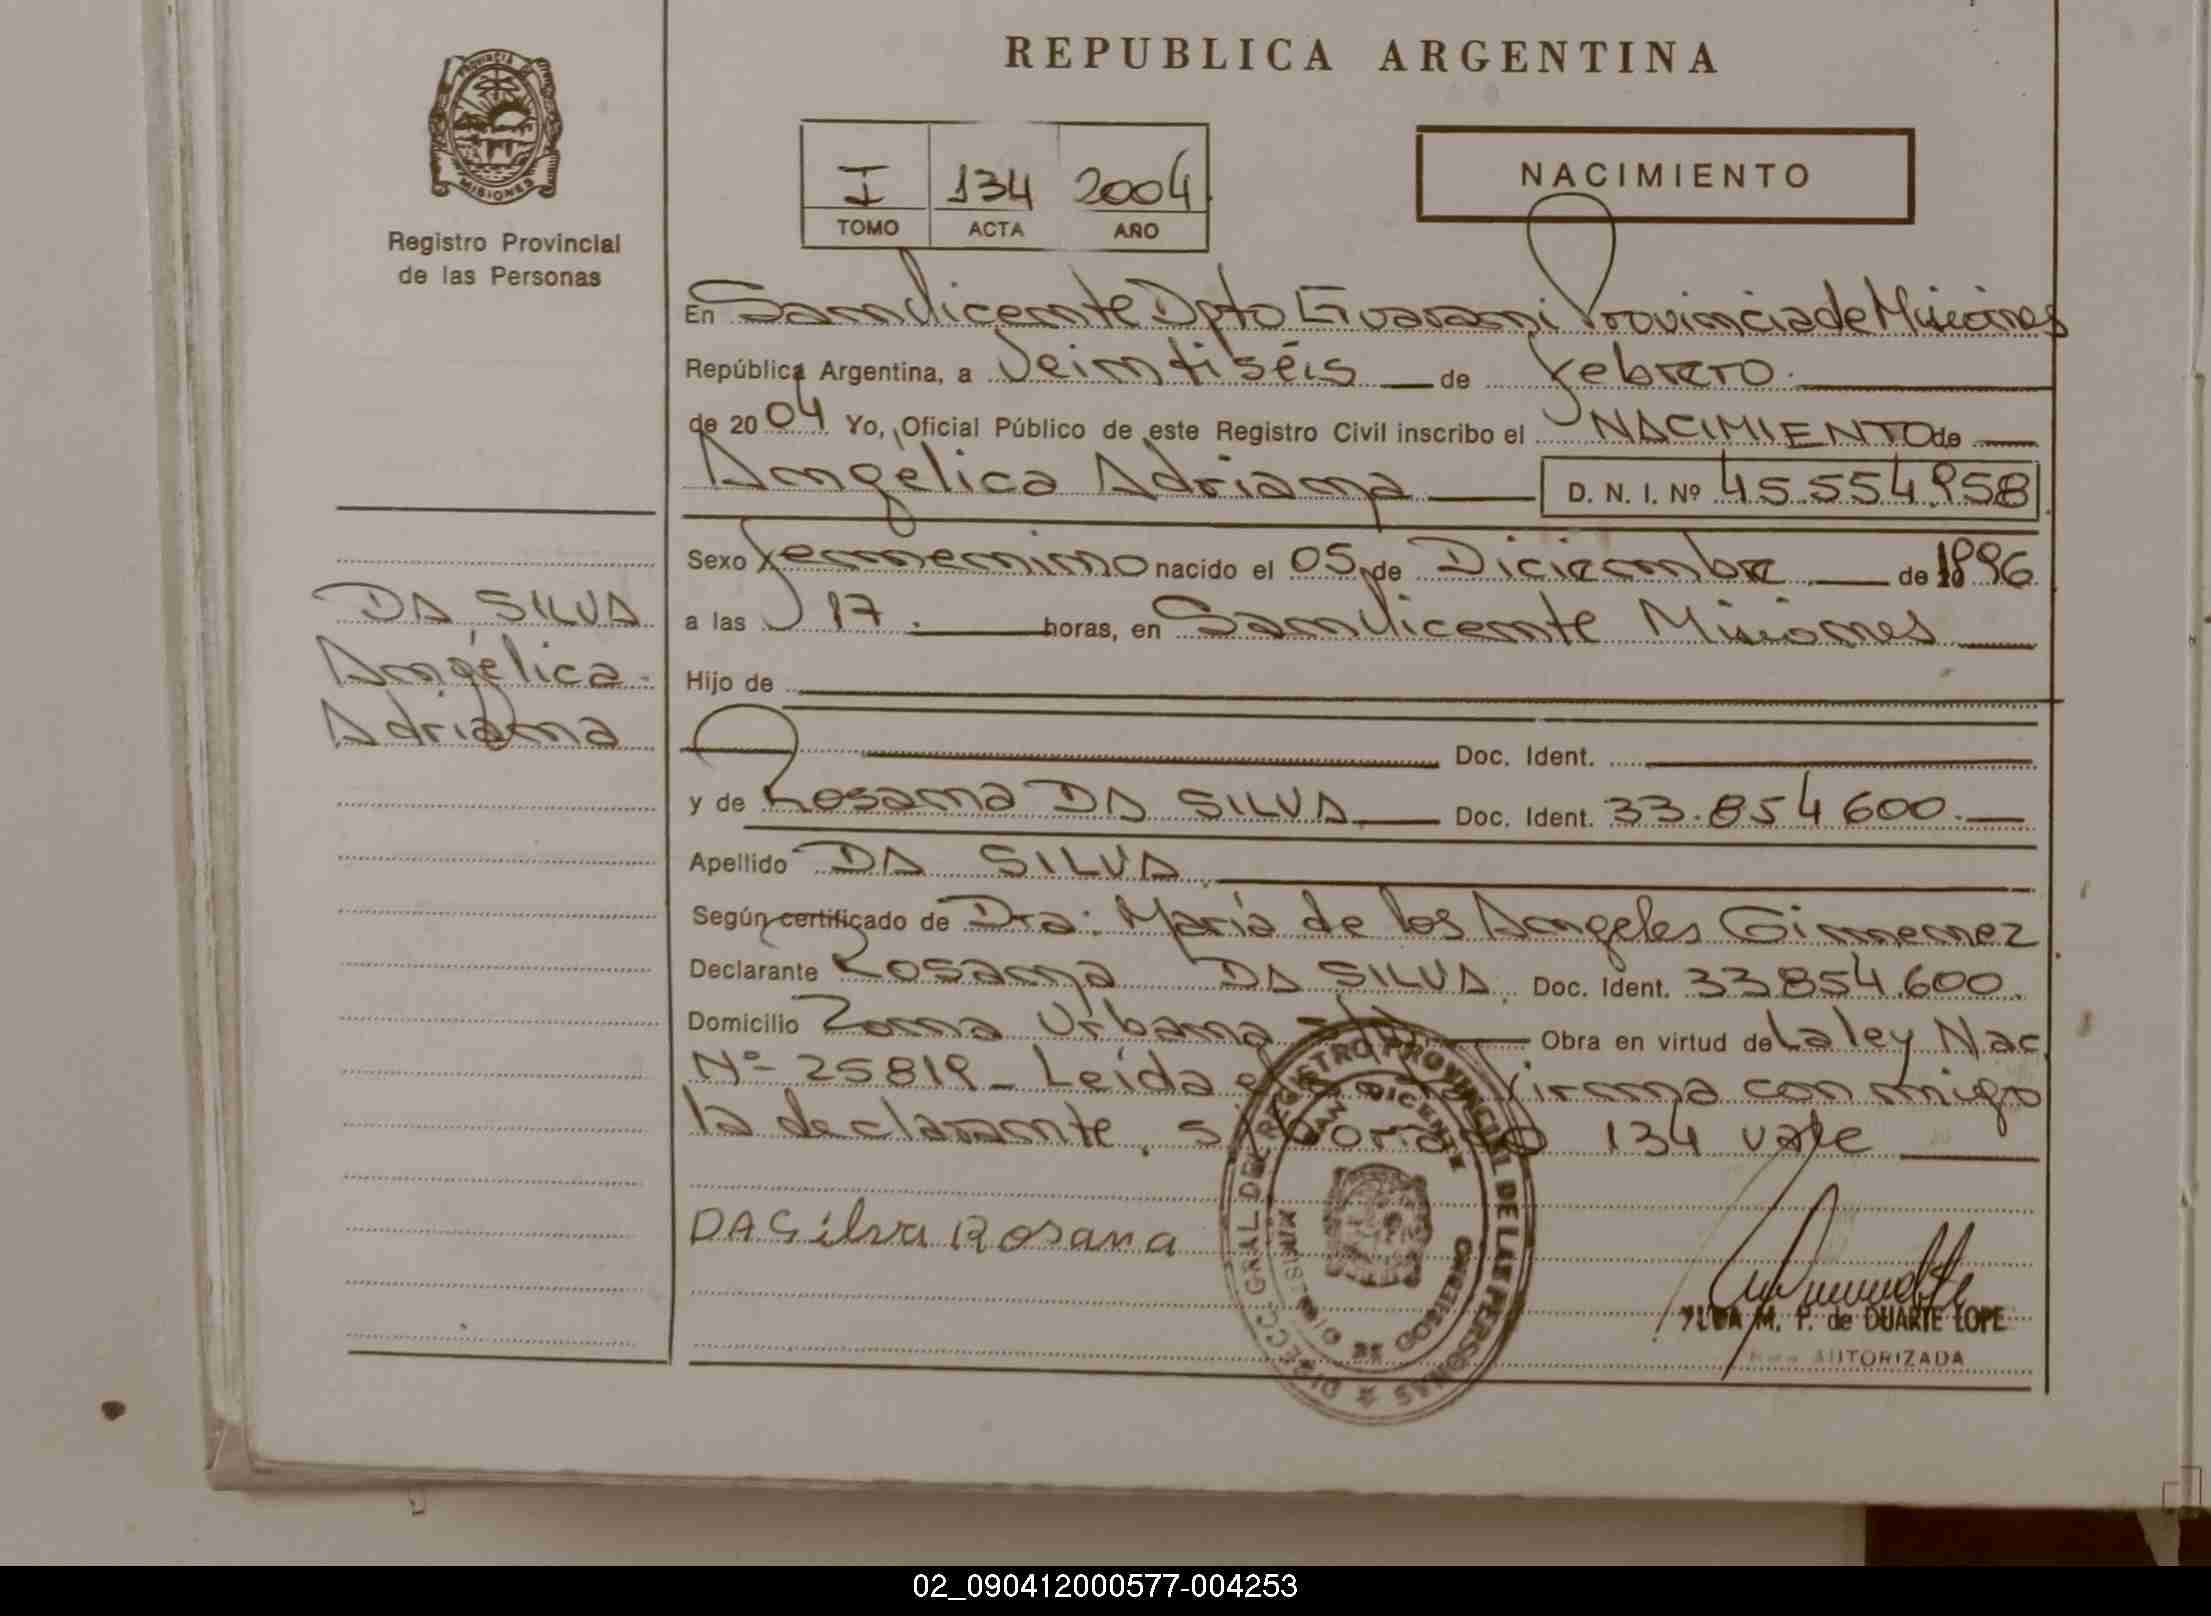 REPUBLICA ARGENTINA
PROVINCIA DE
MISIONES
Registro Provincial
de las Personas
I 134 2004
TOMO ACTA AÑO
NACIMIENTO
En San Vicente Dpto Guarani Provincia de Misiones
República Argentina, a Veintiséis de febrero.
de 2004 Yo, Oficial Público de este Registro Civil inscribo el NACIMIENTO de
Angélica Adriana D. N. I. Nº 45.554.958
Sexo femenino nacido el 05 de Diciembre de 1996
a las 17. horas, en San Vicente Misiones
Hijo de
Doc. Ident.
y de Rosana DA SILVA Doc. Ident. 33.854600.
Apellido DA SILVA
Según certificado de Dra: María de los Angeles Gimenez
Declarante Rosana DA SILVA. Doc. Ident. 33854.600.
Domicilio Zona Urbana Obra en virtud de La ley Nac.
Nº 25819 - Leída firma con migo
la declarante. 134 vale
DA Silva Rosana
DA SILVA
Angélica
Adriana
DIRECC. GRAL. DEL REGISTRO PROVINCIAL DE LAS PERSONAS
SAN VICENTE
MINISTERIO DE GOBIERNO
M. P. de DUARTE LOPE
AUTORIZADA
02_090412000577-004253